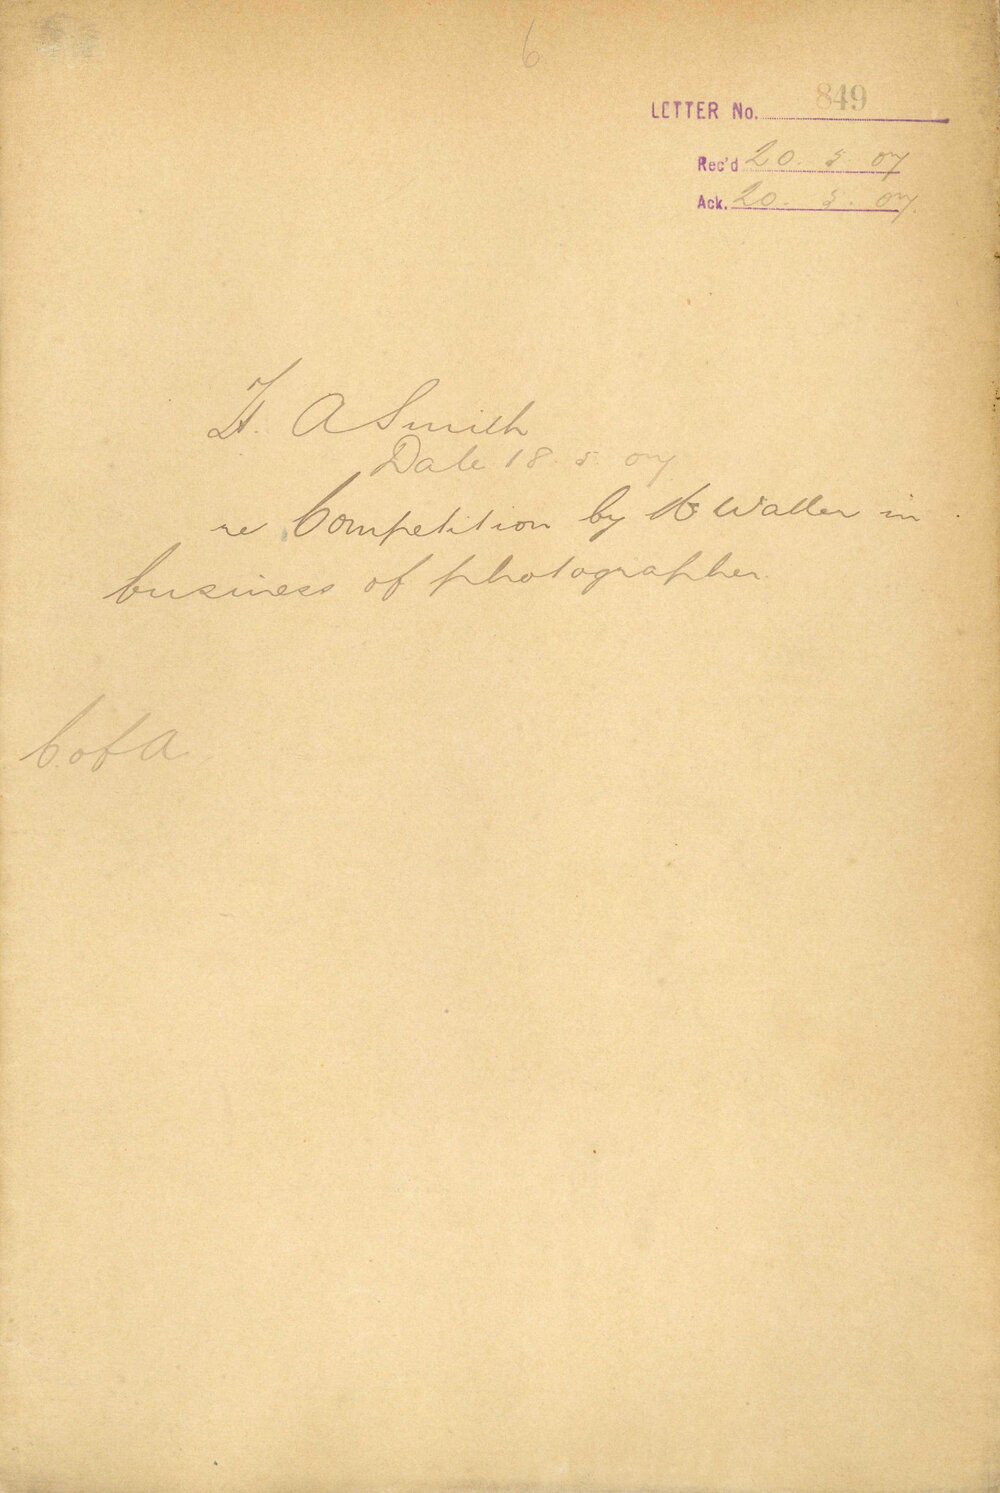 6
LETTER No. 849
Rec'd 20. 5 07
Ack. 20. 5. 07.
H. A Smith
Date 18. 5. 07
re Competition by Waller in
business of photographer.
C. of A